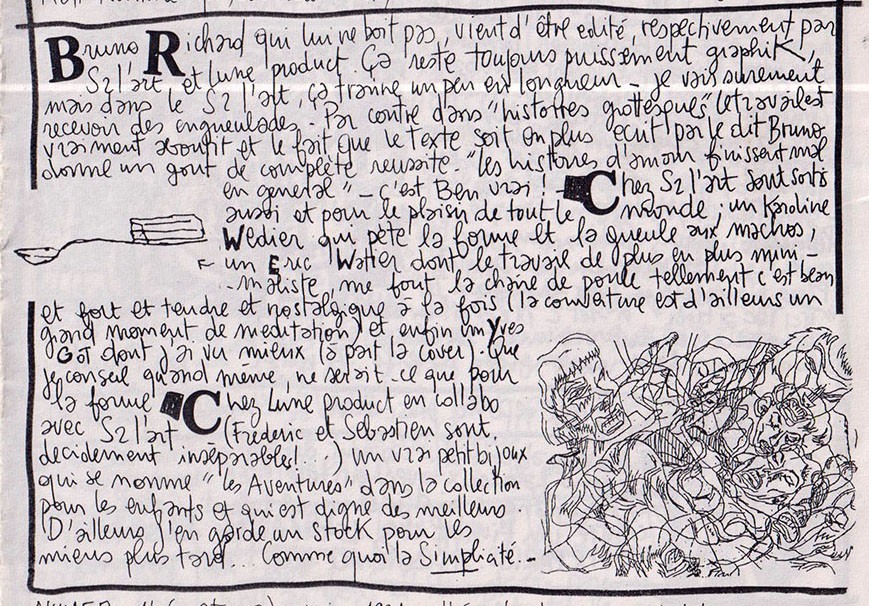 Bruno Richard qui lui ne boit pas, vient d'être edité, respectivement par
S2 l'art et Lune product. Ça reste toujours puissement graphiK,
mais dans le S2 l'art, ça tranne un peu en longueur - je vais surement
recevoir des engueulades - Par contre dans "histoires grottesques" le travail est
vraiment aboutit et le fait que le texte soit en plus ecrit par le dit Bruno
donne un gout de complète reussite. "les histoires d'amour finissent mal
en general" - c'est Ben vrai ! - Chez S2 l'art sont sortis
aussi et pour le plaisir de tout le monde ; un Karoline
Wedier qui pète la forme et la gueule aux machos,
un Eric Watier dont le travail de plus en plus mini-
-maliste me fout la chaire de poule tellement c'est beau
et fort et tendre et nostalgique à la fois (la couverture est d'ailleurs un
grand moment de meditation) et enfin un Yves
Got dont j'ai vu mieux (à part la cover). Que
je conseil quand même, ne serait-ce que pour
la forme Chez Lune product en collabo
avec S2 l'art (Frédéric et Sébastien sont
decidement inséparables! ...) un vrai petit bijoux
qui se nomme "les Aventures" dans la collection
pour les enfants et qui est digne des meilleurs.
D'ailleurs j'en garde un stock pour les
miens plus tard... Comme quoi la Simplicité.-